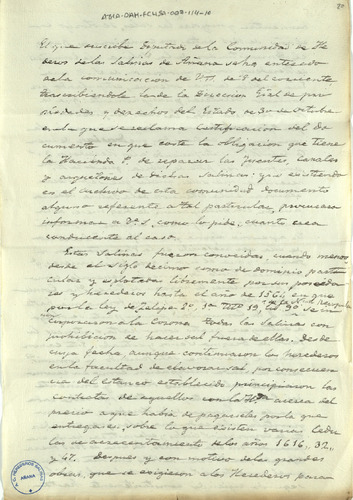 ATHA-DAH-FCUSA-007-114-10
El que suscribe Gerente de la Comunidad de He
rederos de las Salinas de Añana se ha enterado
de la comunicacion de V.I. de 8 del corriente
trascribiendole la de la Direccion Gral de pro
piedades y derechos del Estado de 30 de Octubre
en la que se reclama certificacion del do
cumento en que conste la obligacion que tiene
la Hacienda P. de reparar las fuentes, canales
y de dichas Salinas: y no existiendo
en el archivo de esta comunidad documento
alguno referente a tal particular, procurará
informar a V.S. como lo pide, cuanto crea
conducente al caso.
Estas Salinas fueron conocidas, cuando menos
desde el siglo decimo como de dominio parti
cular y esplotadas libremente por sus poseedo
res y herederos hasta el año de 1564 en que
por la ley de Felipe 2º, se in
corporaron a la Corona todas las salinas con
prohibicion de hacer sal fuera de ellas. Desde
cuya fecha aunque continuaron los herederos
en la facultad de elavorar sal, por consecuen
cia del Estanco establecido principiaron los
contratos de aquellos con la Hda acerca del
precio a que habia de pagarseles por la que
entregasen: sobre la que existen varias Cedu
las de acrecentamiento de los años 1616, 32,
y 47. Despues y con motivo de las grandes
obras, que se exigieron a los Herederos para
AÑANA